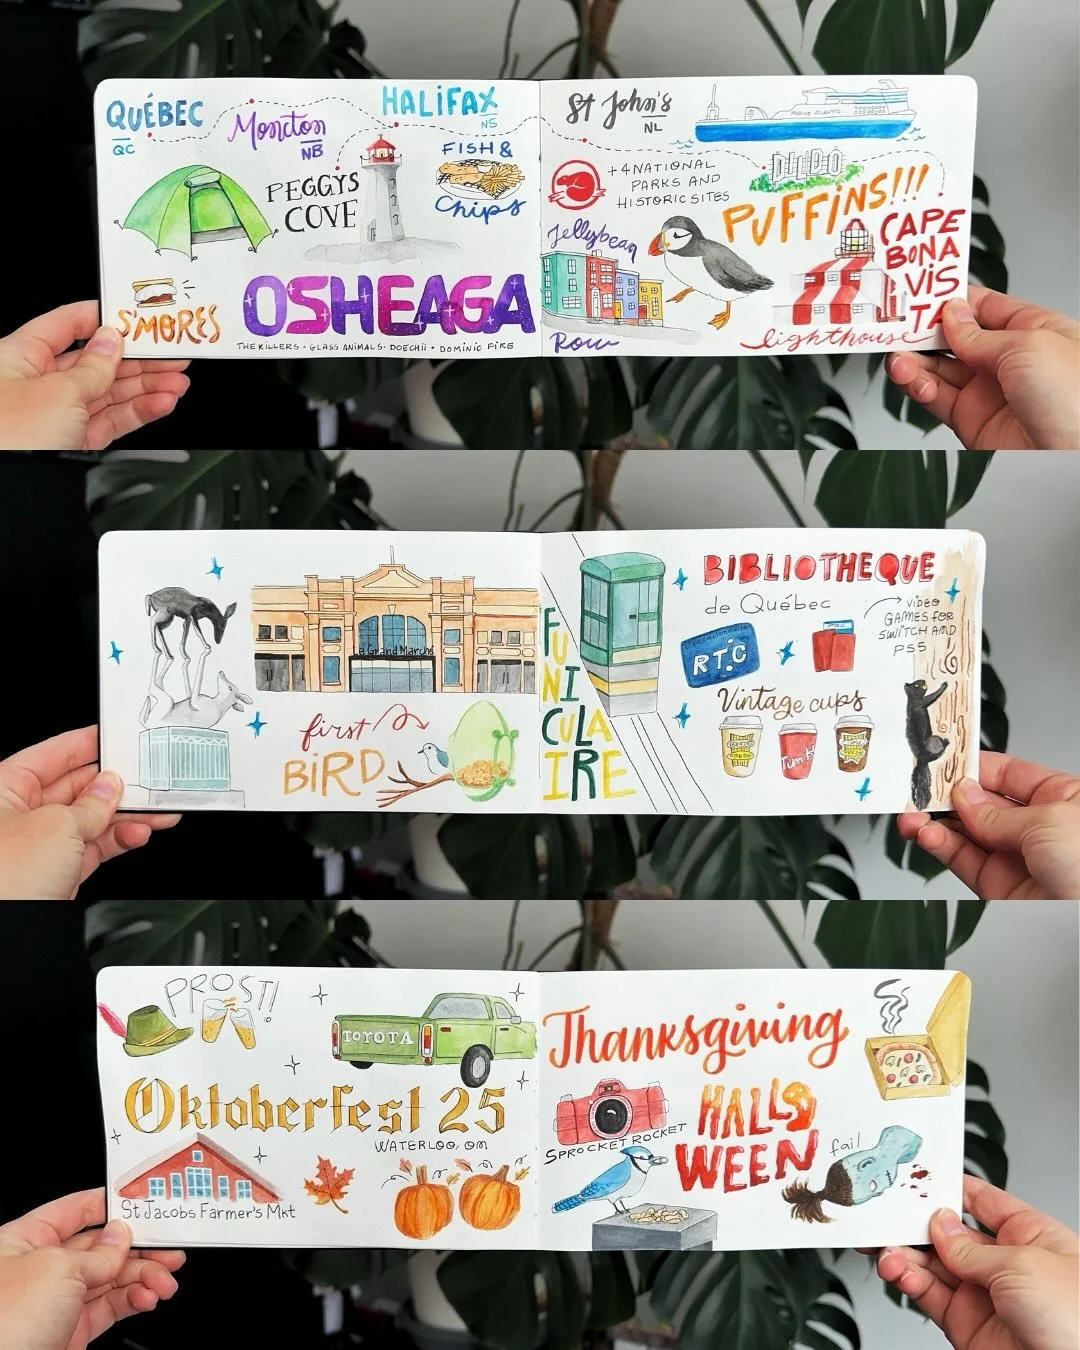 QUÉBEC
QC
Moncton
NB
HALIFAX
NS
PEGGYS
COVE
FISH &
Chips
S'MORES
OSHEAGA
THE KILLERS • GLASS ANIMALS • DOECHII • DOMINIC FIKE
St John's
NL
MARINE ATLANTIC
+4 NATIONAL
PARKS AND
HISTORIC SITES
DILDO
PUFFINS!!!
Jellybean
Row
CAPE
BONA
VIS
TA
lighthouse
Le Grand Marché
first
BIRD
FUNICULAIRE
BIBLIOTHEQUE
de Québec
VIDEO
GAMES FOR
SWITCH AND
PS5
L'occasionnelle
RTC
Vintage cups
PROST!
TOYOTA
Oktoberfest 25
WATERLOO, ON
St Jacobs Farmer's Mkt
Thanksgiving
SPROCKET ROCKET
HALLO
WEEN
fail